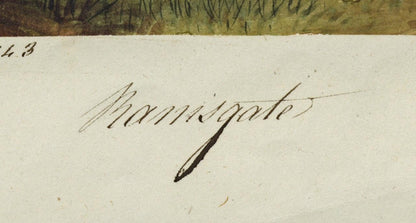 43
Ramsgate